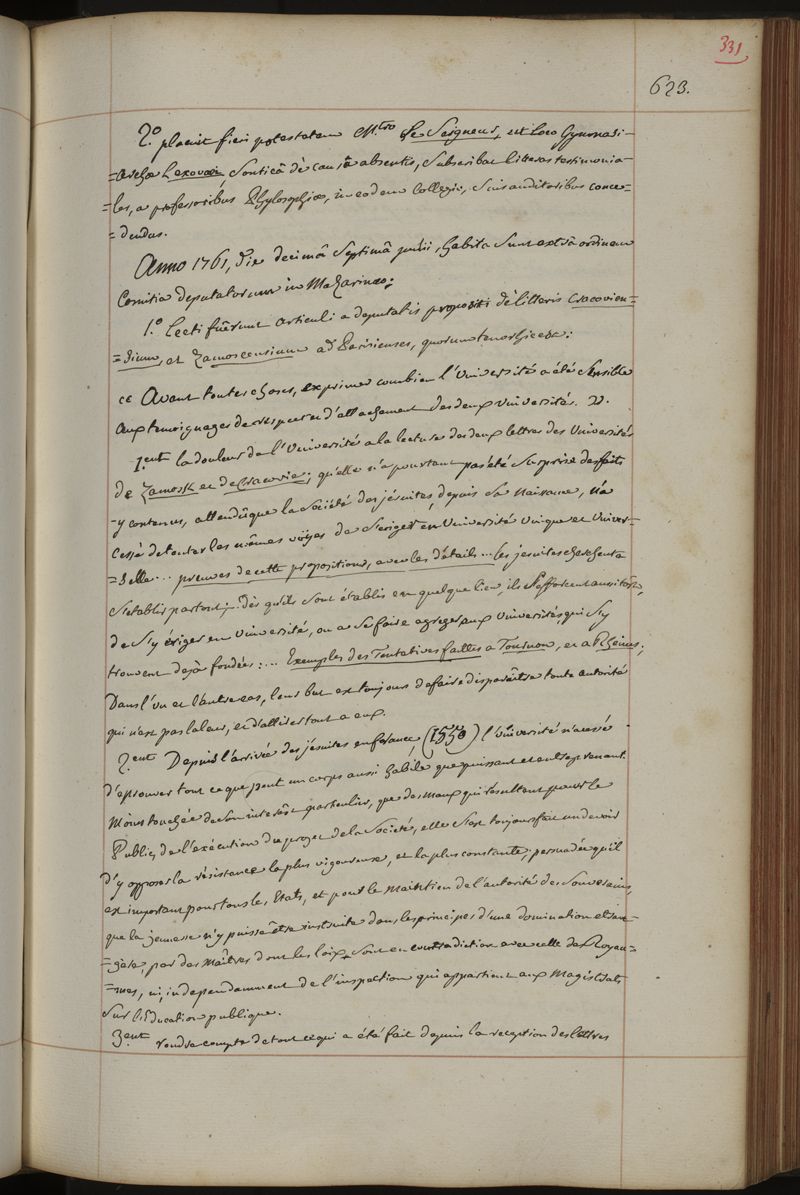 331
623.
2.º placuit fieri potestatem M.tro Le Seigneur, ut loco Gymnasi-
=archæ Lexovæi Sonticâ de causâ absentis, Subscribat litteras testimonia-
=les, a professoribus Phylosophiæ, in eodem Collegio, Suis auditoribus conce=
=dendas.
Anno 1761, die decimâ Septimâ junii, habita Sunt extrà ordinem
Comitia deputatorum in Mazarinæo;
1.º Lecti fuêrunt articuli a deputatis propositi de litteris Cracovien=
=sium, et Zamoscensium ad Parisienses, quorum tenor hic est:
« Avant toutes choses, exprimer combien l'Université a été Sensible
aux temoignages de respect et d'attachement des deux universités. ».
1.ent la douleur de l'Université a la lecture des deux lettres des Universités
de Zamosk et de Cracovie; qu'elle n'a pourtant pas été Surprise des faits
-y contenus, attendûque la Société des jésuites, depuis Sa naissance, n'a
cessé de tenter les mêmes voÿes de S'eriger en Université unique et univer=
=selle... preuves de cette proposition, avec les détails... les jesuites cherchent a
S'etablir partout; dès qu'ils Sont établis en quelque lieu, ils S'efforcent aussitôt,
de S'y ériger en Université, ou a Se faire agreger aux Universités, qui S'y
trouvent dejà fondées:... Exemples des Tentatives faittes a Tournon, et a Rheims;
Dans l'un et l'autre cas, leur but est toujours de faire disparoître toute autorité
qui n'est pas la leur, et d'attirer tout a eux.
2.ent Depuis l'arrivée des jésuites en france (1550) l'université n'a cessé
d'eprouver tout ce que peut un corps aussi habile que puissant et entreprenant.
Moins touchée de Son interêst particulier, que des maux qui résultent pour le
Public, de l'exécution du projet de la Société, elle S'est toujours fait un devoir
d'y opposer la résistance la plus vigoureuse, et la plus constante, persuadée qu'il
est important pour tous les Etats, et pour le Maintien de l'autorité des Souverains,
que la jeunesse n'y puisse être instruite dans les principes d'une domination etran=
=gere, par des Maîtres dont les loix Sont en contradiction avec celle des Royau=
=mes, ni, independamment de l'inspection qui appartient aux Magistrats
Sur l'Education publique.
3.ent rendre compte de tout ce qui a été fait depuis la reception des lettres